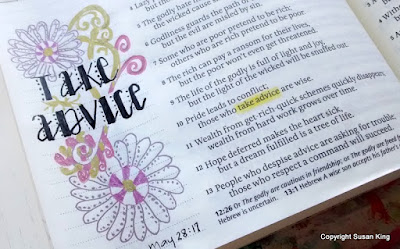 Take
Advice
the wicked cause
6 Godliness guards the path
but the evil are misled by sin.
7 Some who are poor pretend to be rich;
others who are rich pretend to be poor.
8 The rich can pay a ransom for their lives,
but the poor won't even get threatened.
9 The life of the godly is full of light and joy,
but the light of the wicked will be snuffed out.
10 Pride leads to conflict;
those who take advice are wise.
11 Wealth from get-rich-quick schemes quickly disappears;
wealth from hard work grows over time.
12 Hope deferred makes the heart sick,
but a dream fulfilled is a tree of life.
13 People who despise advice are asking for trouble;
those who respect a command will succeed.
12:26 Or The godly are cautious in friendship; or The godly are freed
Hebrew is uncertain. 13:1 Hebrew A wise son accepts his father's
May 28:17
Copyright Susan King